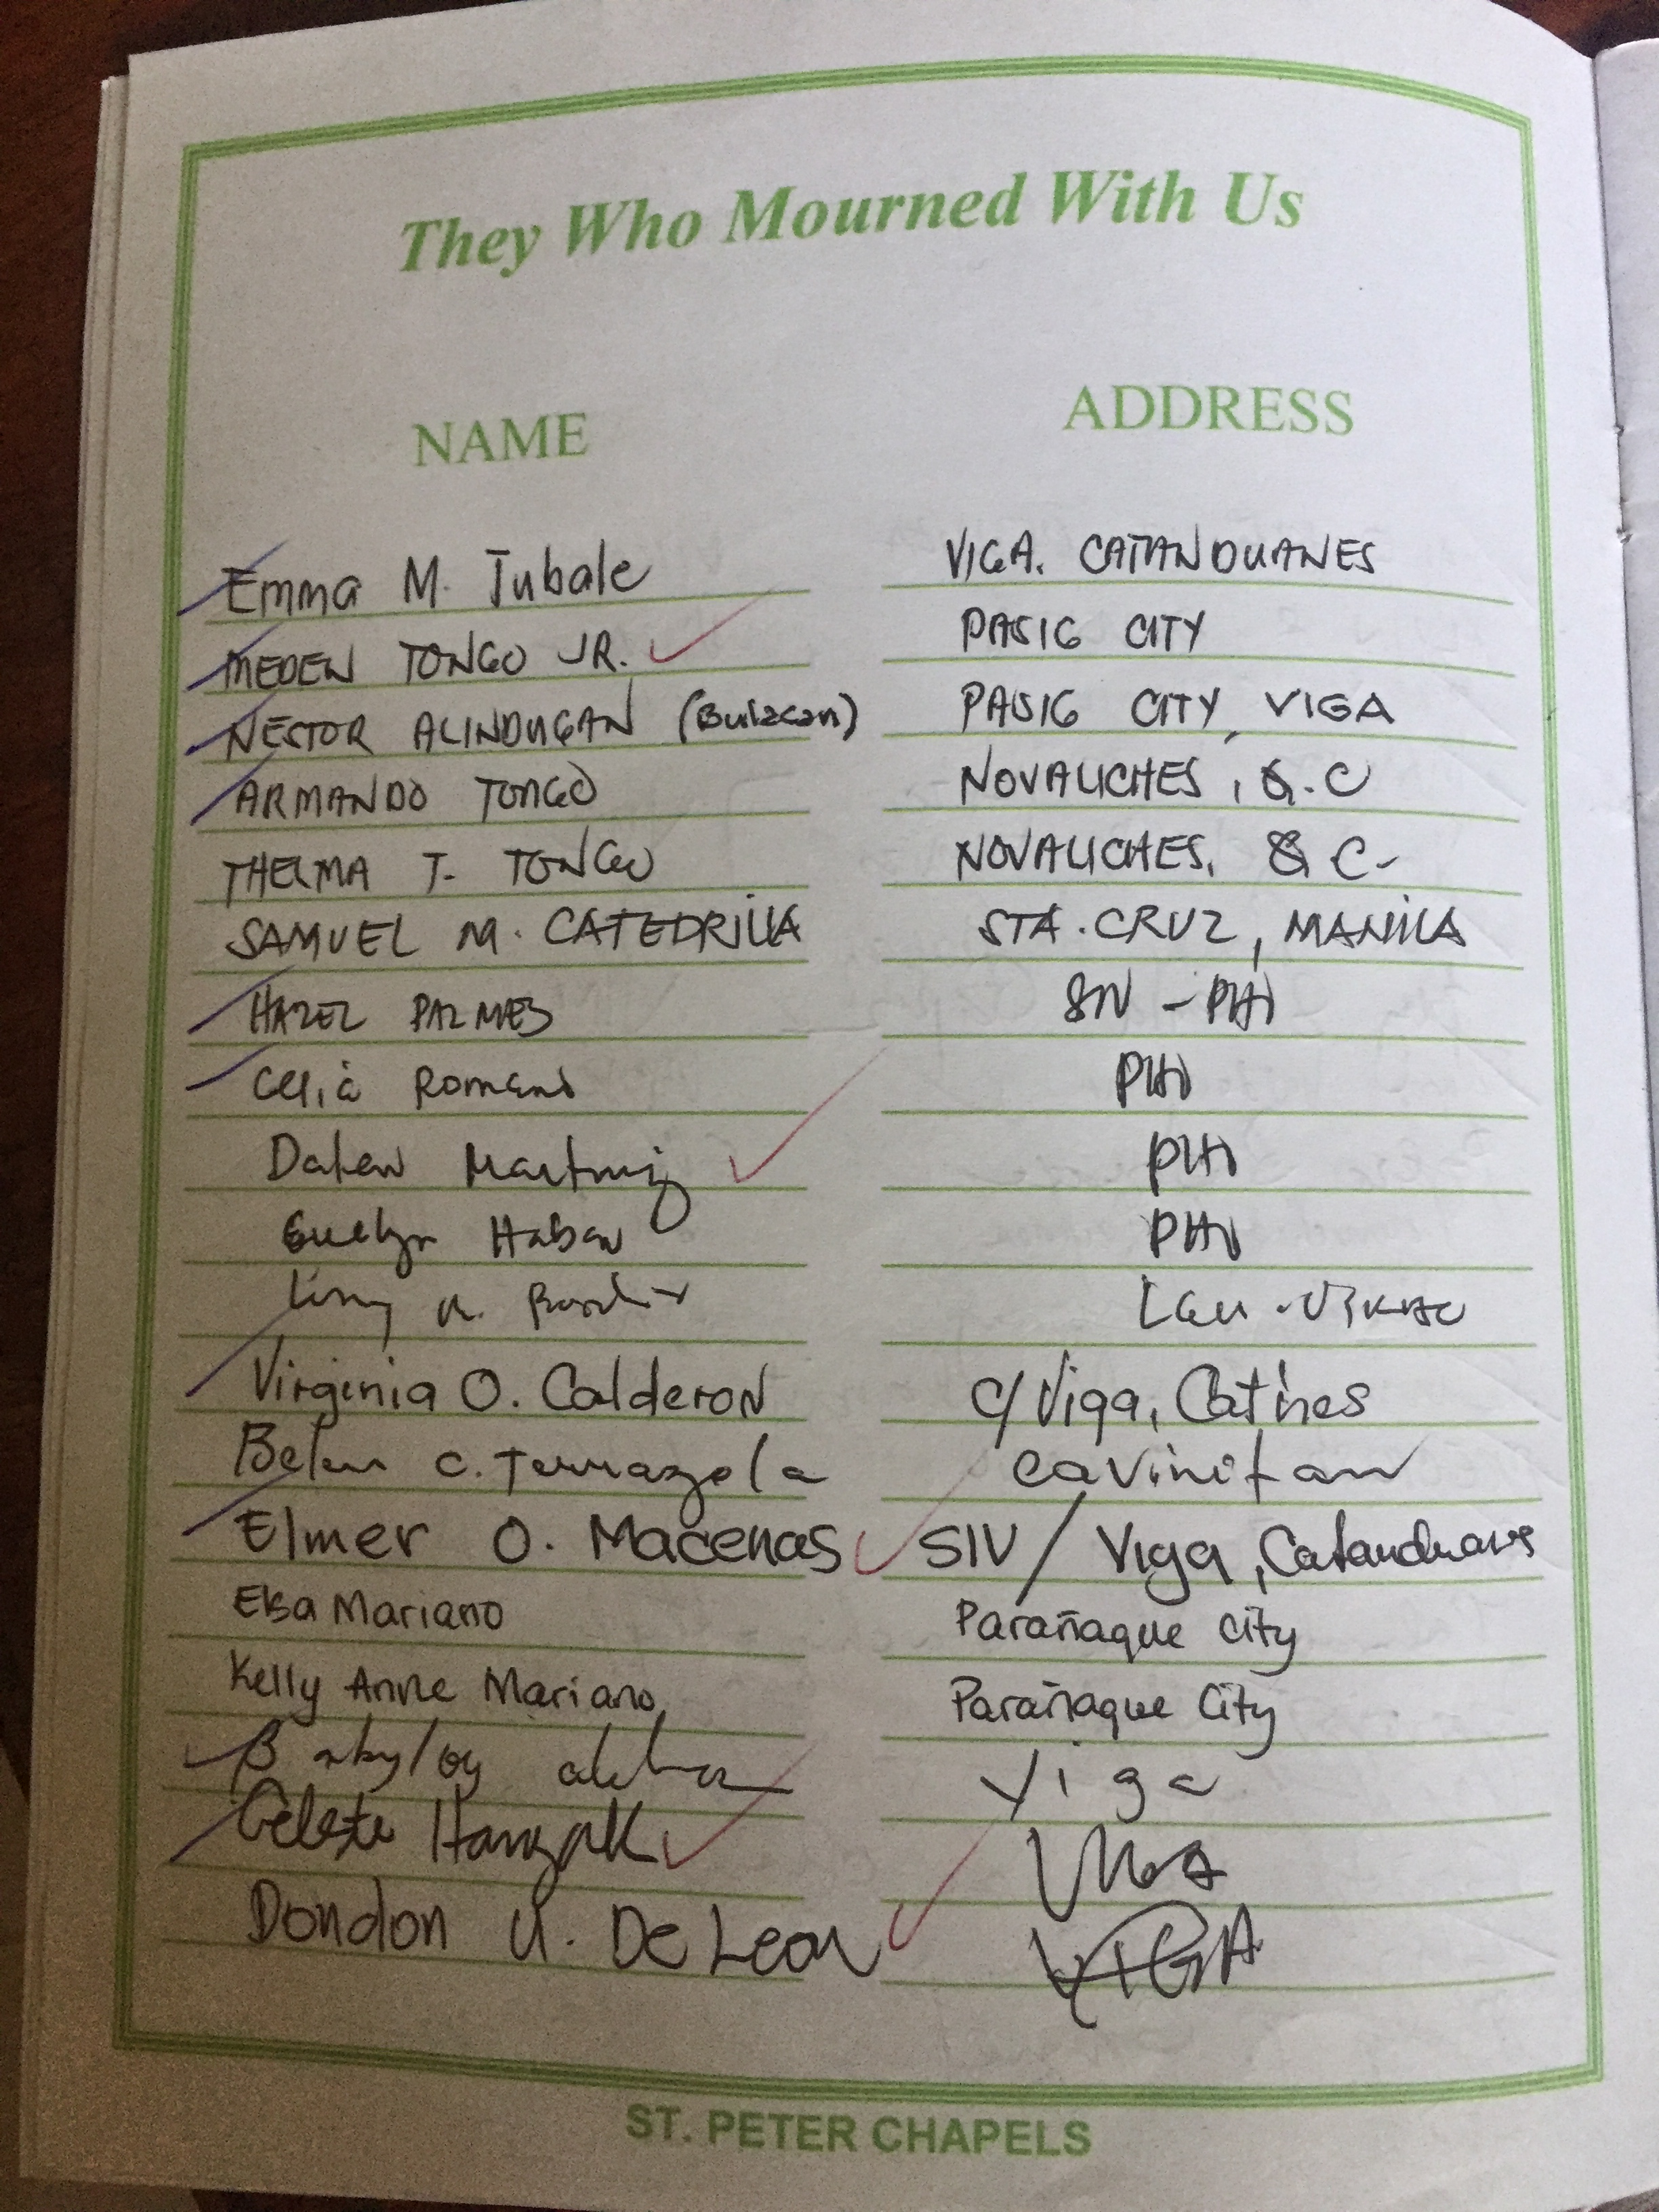 They Who Mourned With Us
NAME ADDRESS
Emma M. Tubale VIGA. CATANDUANES
MEDEN TONGO JR. PASIG CITY
NESTOR ALINDUGAN (Bulacan) PASIG CITY, VIGA
ARMANDO TONGO NOVALICHES, Q.C
THELMA T. TONGO NOVALICHES, Q C-
SAMUEL M. CATEDRILLA STA. CRUZ, MANILA
HAZEL PALMES SN - PHI
Celia Romano PHI
Martinez PHI
Evelyn PHI
Virginia O. Calderon c/Viga, Cat'nes
Belen C. cavinitan
Elmer O. Macenas SIV / Viga, Catanduanes
Elsa Mariano Parañaque City
Kelly Anne Mariano Parañaque City
Viga
Celeste VIGA
Dondon U. De Leon VIGA
ST. PETER CHAPELS